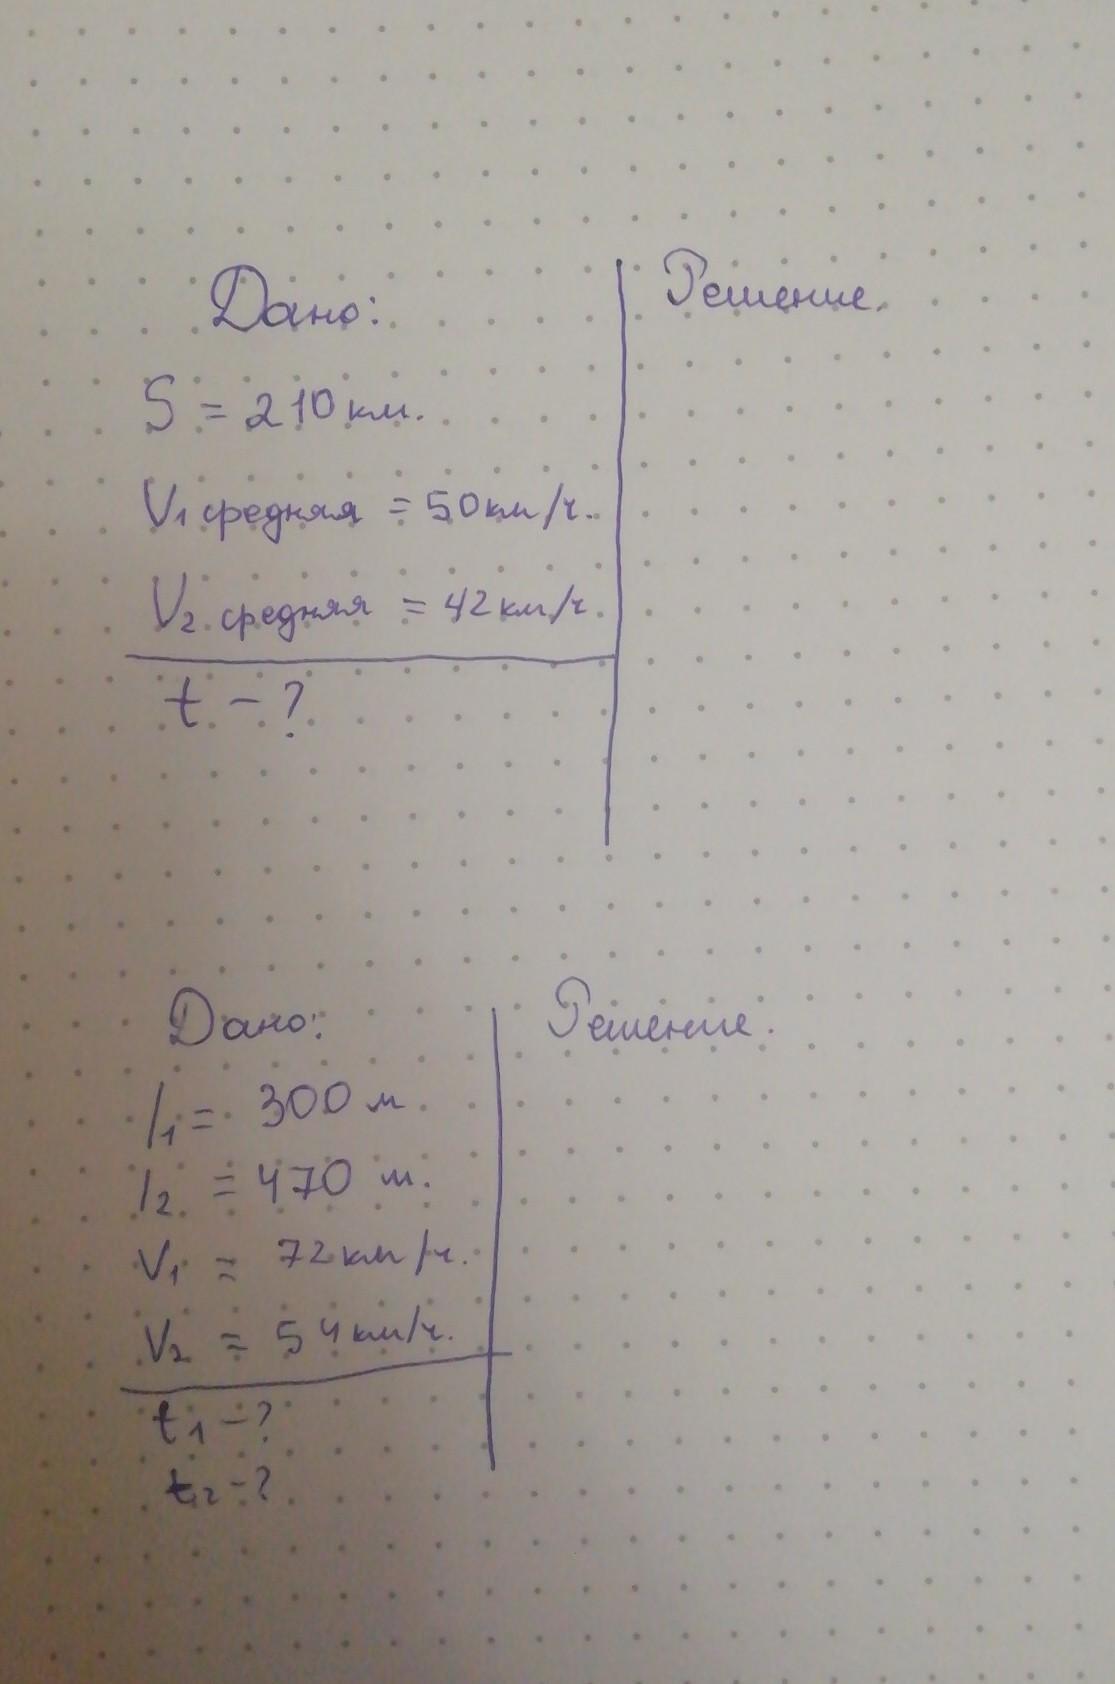 Дано:
S = 210 км.
V1 средняя = 50 км/ч.
V2 средняя = 42 км/ч.
t - ?
Решение.
Дано:
l1 = 300 м.
l2 = 470 м.
V1 = 72 км/ч.
V2 = 54 км/ч.
t1 - ?
t2 - ?
Решение.